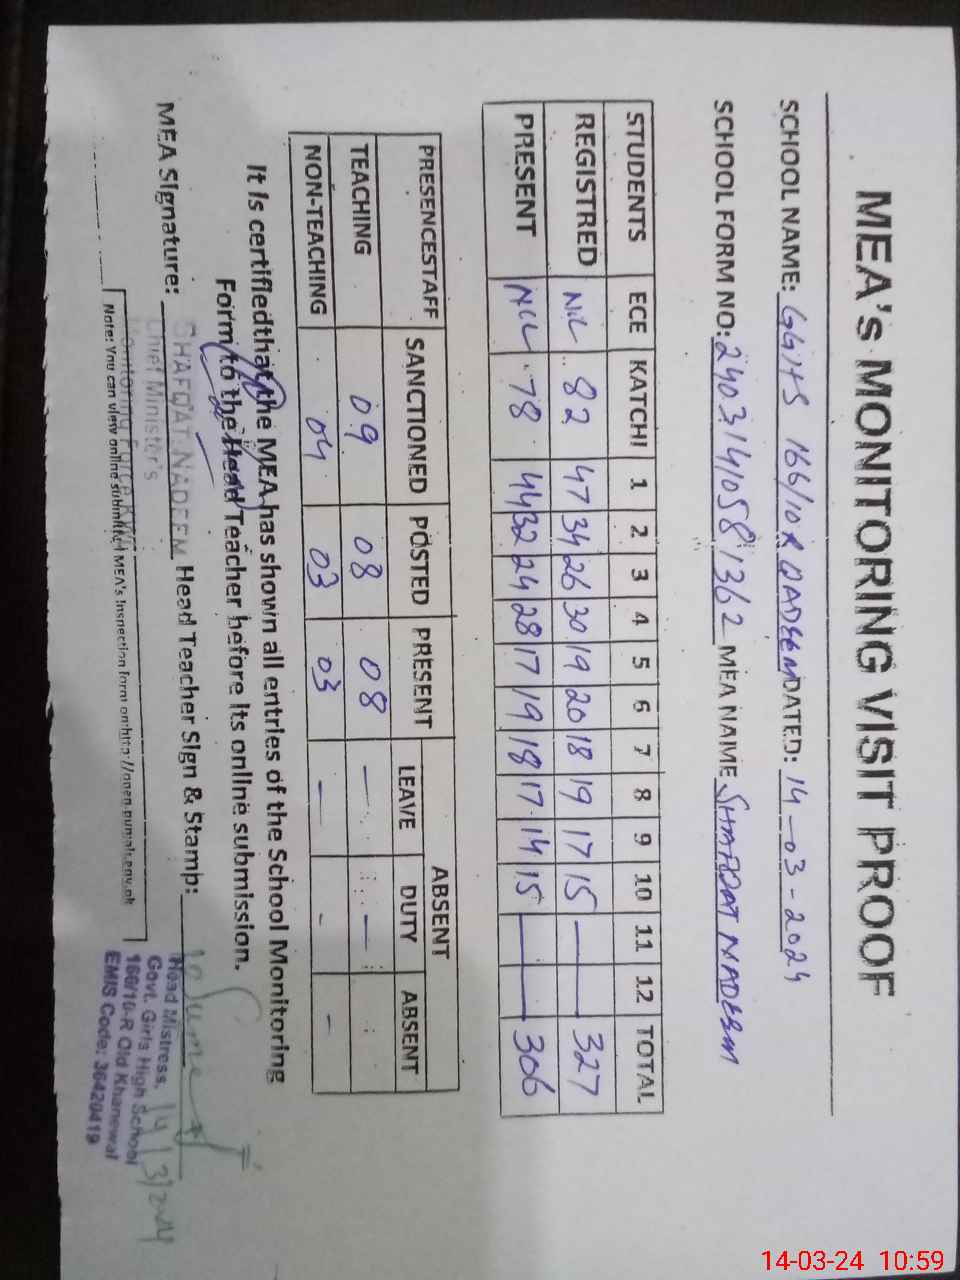 MEA's MONITORING VISIT PROOF
SCHOOL NAME: GGHS 166/10R QADEEM DATED: 14-03-2024
SCHOOL FORM NO: 24031410581362 MEA NAME SHAFQAT NADEEM
STUDENTS ECE KATCHI 1 2 3 4 5 6 7 8 9 10 11 12 TOTAL
REGISTRED NIL 82 47 34 26 30 19 20 18 19 17 15 — — 327
PRESENT NIL 78 44 32 24 28 17 19 18 17 14 15 — — 306
PRESENCESTAFF SANCTIONED POSTED PRESENT ABSENT
LEAVE DUTY ABSENT
TEACHING 09 08 08 — —
NON-TEACHING 04 03 03 — - -
It is certifiedthat the MEA has shown all entries of the School Monitoring
Form to the Head Teacher before its online submission.
MEA Signature: Head Teacher Sign & Stamp:
SHAFQAT NADEEM
Chief Minister's
Monitoring Force
Note: You can view online submitted MEA's Inspection form on http://open.punjab.gov.pk
Head Mistress,
Govt. Girls High School
166/10-R Old Khanewal
EMIS Code: 36420419
14/3/2024
14-03-24 10:59